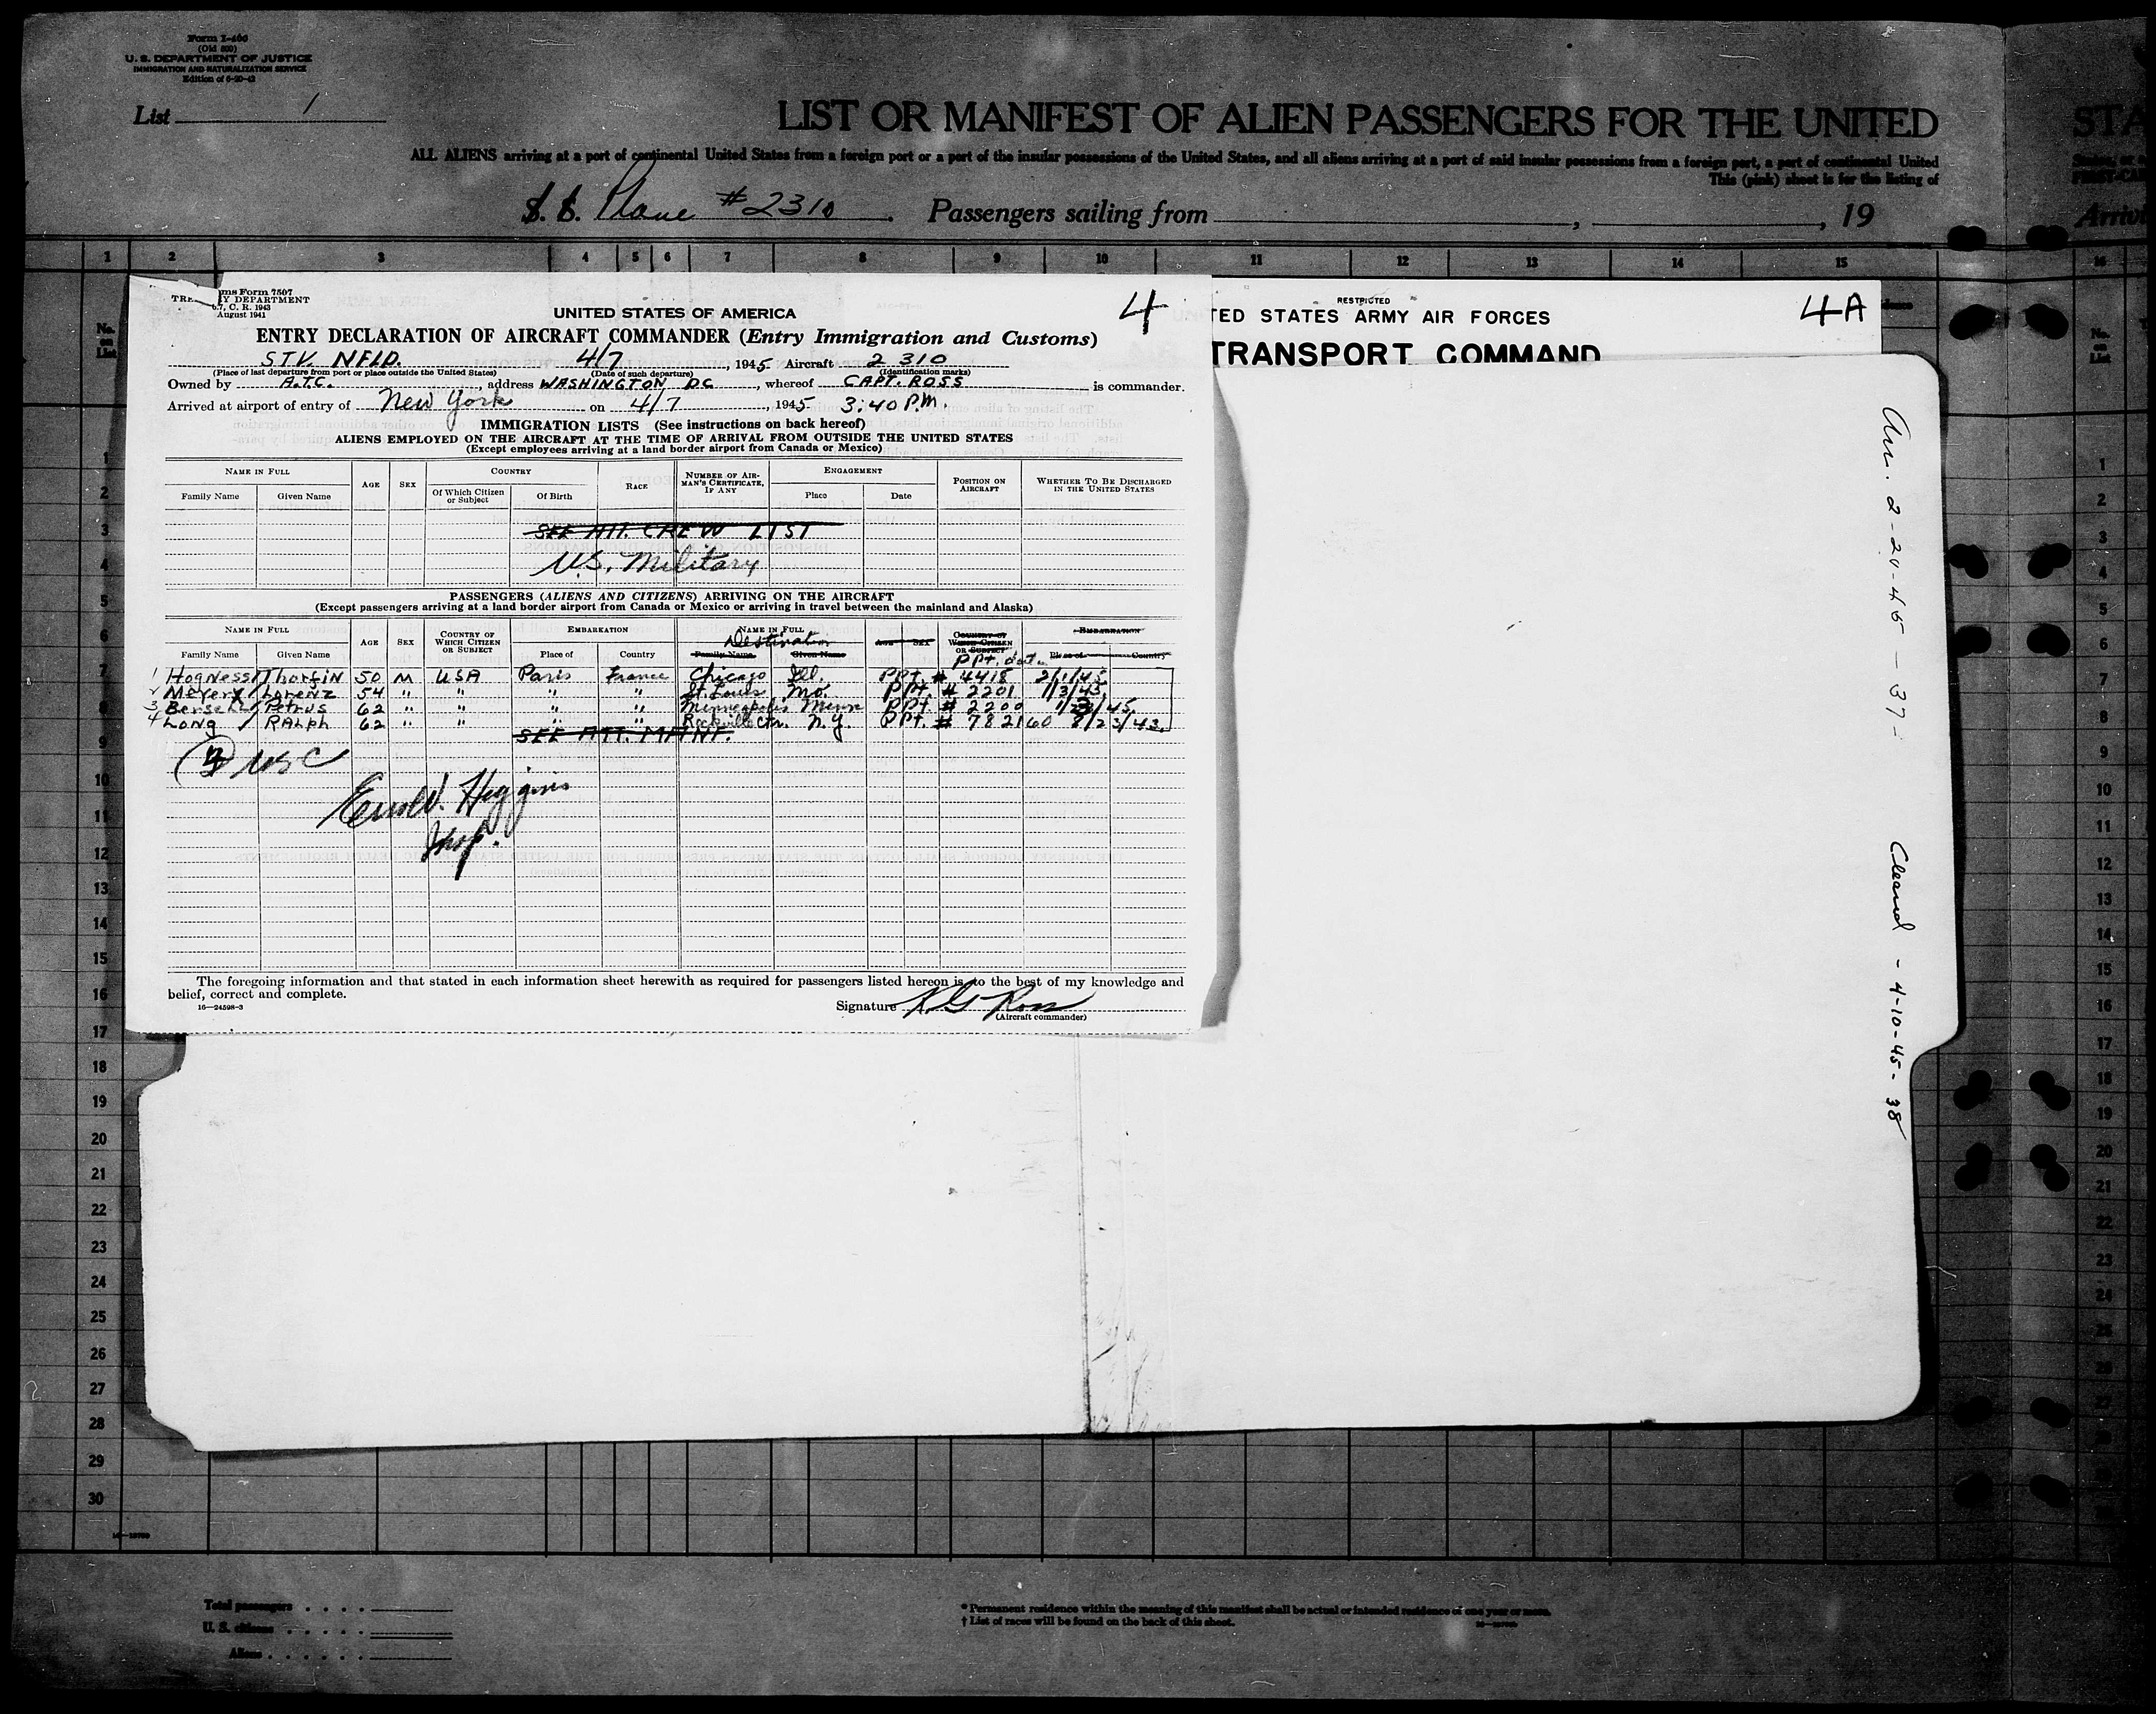 Form I-466
(Old 500)
U. S. DEPARTMENT OF JUSTICE
IMMIGRATION AND NATURALIZATION SERVICE
List 1
LIST OR MANIFEST OF ALIEN PASSENGERS FOR THE UNITED
STA
ALL ALIENS arriving at a port of continental United States from a foreign port or a port of the insular possessions of the United States, and all aliens arriving at a port of said insular possessions from a foreign port, a port of continental United
This (pink) sheet is for the listing of
S. S. Plane #2310 . Passengers sailing from , , 19
Arriv
1 2 3 4 5 6 7 8 9 10 11 12 13 14 15 16
ms Form 7507
TRE Y DEPARTMENT
C. R. 1943
August 1941
4
UNITED STATES OF AMERICA
ENTRY DECLARATION OF AIRCRAFT COMMANDER (Entry Immigration and Customs)
STV. NFLD. 4/7, 1945 Aircraft 2310
(Place of last departure from port or place outside the United States) (Date of such departure) (Identification marks)
Owned by A.T.C., address WASHINGTON DC, whereof CAPT. ROSS is commander.
Arrived at airport of entry of New York on 4/7, 1945 3:40 P.M.
IMMIGRATION LISTS (See instructions on back hereof)
ALIENS EMPLOYED ON THE AIRCRAFT AT THE TIME OF ARRIVAL FROM OUTSIDE THE UNITED STATES
(Except employees arriving at a land border airport from Canada or Mexico)
NAME IN FULL AGE SEX COUNTRY RACE NUMBER OF AIRMAN'S CERTIFICATE, IF ANY ENGAGEMENT POSITION ON AIRCRAFT WHETHER TO BE DISCHARGED IN THE UNITED STATES
Family Name Given Name Of Which Citizen or Subject Of Birth Place Date
SEE ATT. CREW LIST
U.S. Military
PASSENGERS (ALIENS AND CITIZENS) ARRIVING ON THE AIRCRAFT
(Except passengers arriving at a land border airport from Canada or Mexico or arriving in travel between the mainland and Alaska)
NAME IN FULL AGE SEX COUNTRY OF WHICH CITIZEN OR SUBJECT EMBARKATION NAME IN FULL AGE SEX COUNTRY OF WHICH CITIZEN OR SUBJECT EMBARKATION
Destination
Family Name Given Name Place of Country Family Name Given Name PPt. dat. Place of Country
1 Hogness / Thorfin 50 M USA Paris France Chicago Ill. PPt. # 4418 2/1/45
2 / Lorenz 54 " " " " St. Louis Mo. PPt. # 2201 1/3/45
3 / Petrus 62 " " " " Minneapolis Minn PPt. # 2200 /45
4 Long / RALPH 62 " " " " Rockville Ctr. N.Y. PPt. # 782160 8/23/43
SEE ATT. MANF.
4 USC
Higgins
Insp.
The foregoing information and that stated in each information sheet herewith as required for passengers listed hereon is to the best of my knowledge and
belief, correct and complete.
16—24598-3
Signature K G Ross
(Aircraft commander)
RESTRICTED
4A
TED STATES ARMY AIR FORCES
TRANSPORT COMMAND
Arr. 2-20-45-37-
Cleared - 4-10-45-38
No. on List
1
2
3
4
5
6
7
8
9
10
11
12
13
14
15
16
17
18
19
20
21
22
23
24
25
26
27
28
29
30
Total passengers
U. S. citizens
Aliens
* Permanent residence within the meaning of this manifest shall be actual or intended residence of one year or more.
† List of races will be found on the back of this sheet.